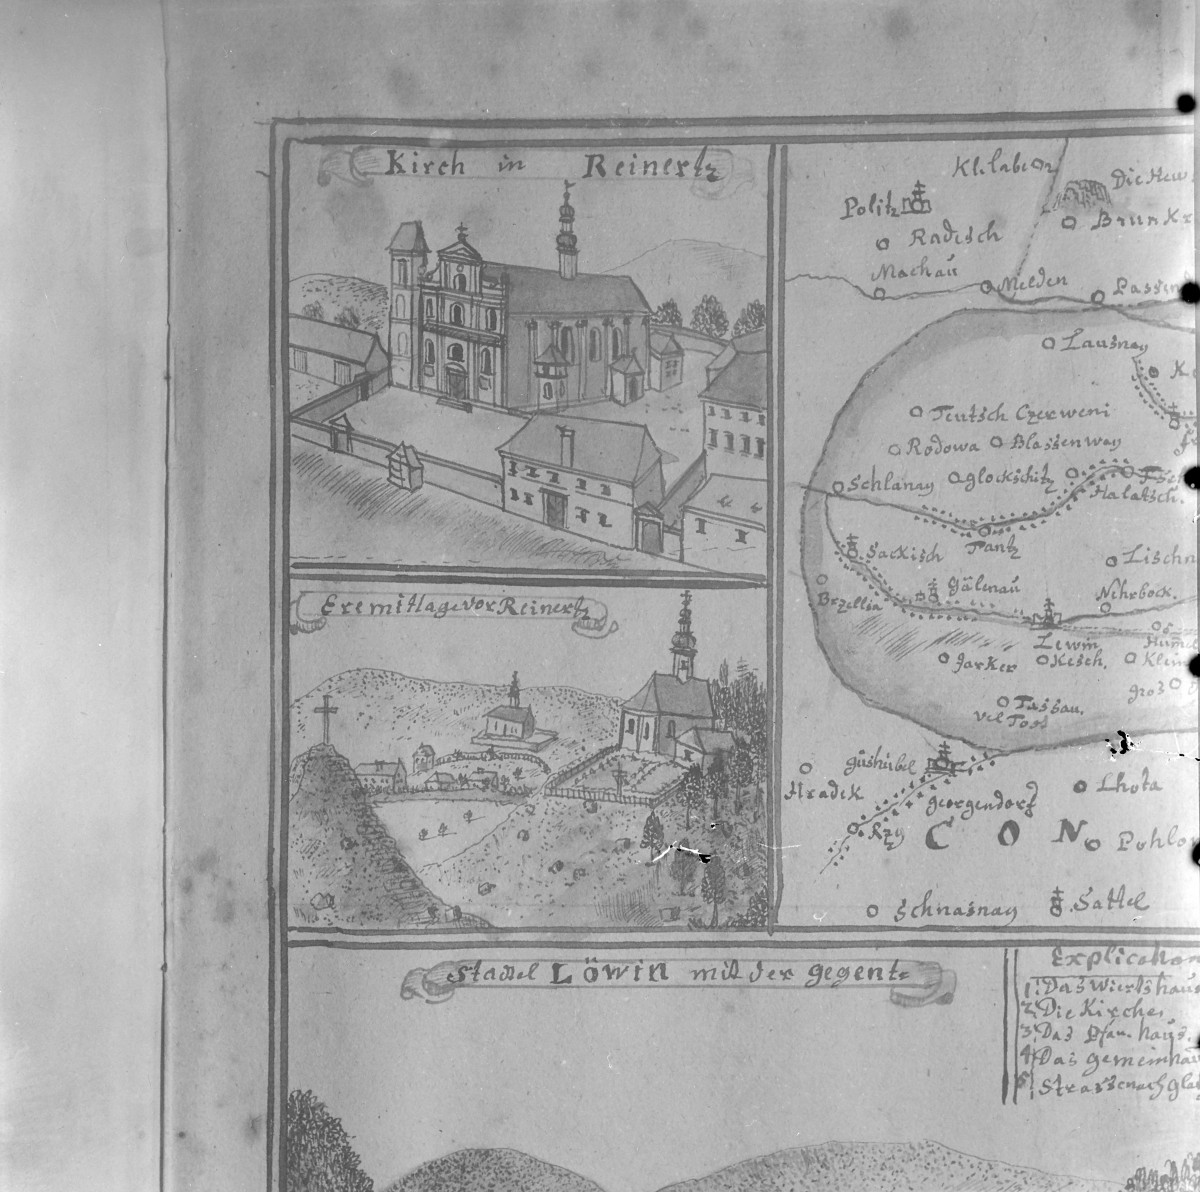 Kirch in Reinertz
Eremitlage vor Reinertz
Kl. labe
Politz
Radisch
Machau
Melden
Lausnay
Teutsch Czerweni
Rodowa
Blassenway
Schlanay
glockschitz
Halatsch.
Tantz
Sackisch
gälenau
Brzellia
Lischn
Nehrbock.
Lewin
Jarker
Kesch.
Klein
groß
Tassau.
vel Toss
gushübel
Hradek
georgendorf
Lhota
Rzy
CON
Pohlo
Schnasnay
Sattel
Stadtel Löwin mit der gegent
Explication
1. Das Wiertshaus
2. Die Kirche.
3. Das Pfar. haus.
4. Das gemeinhau
5. Strasse nach glat